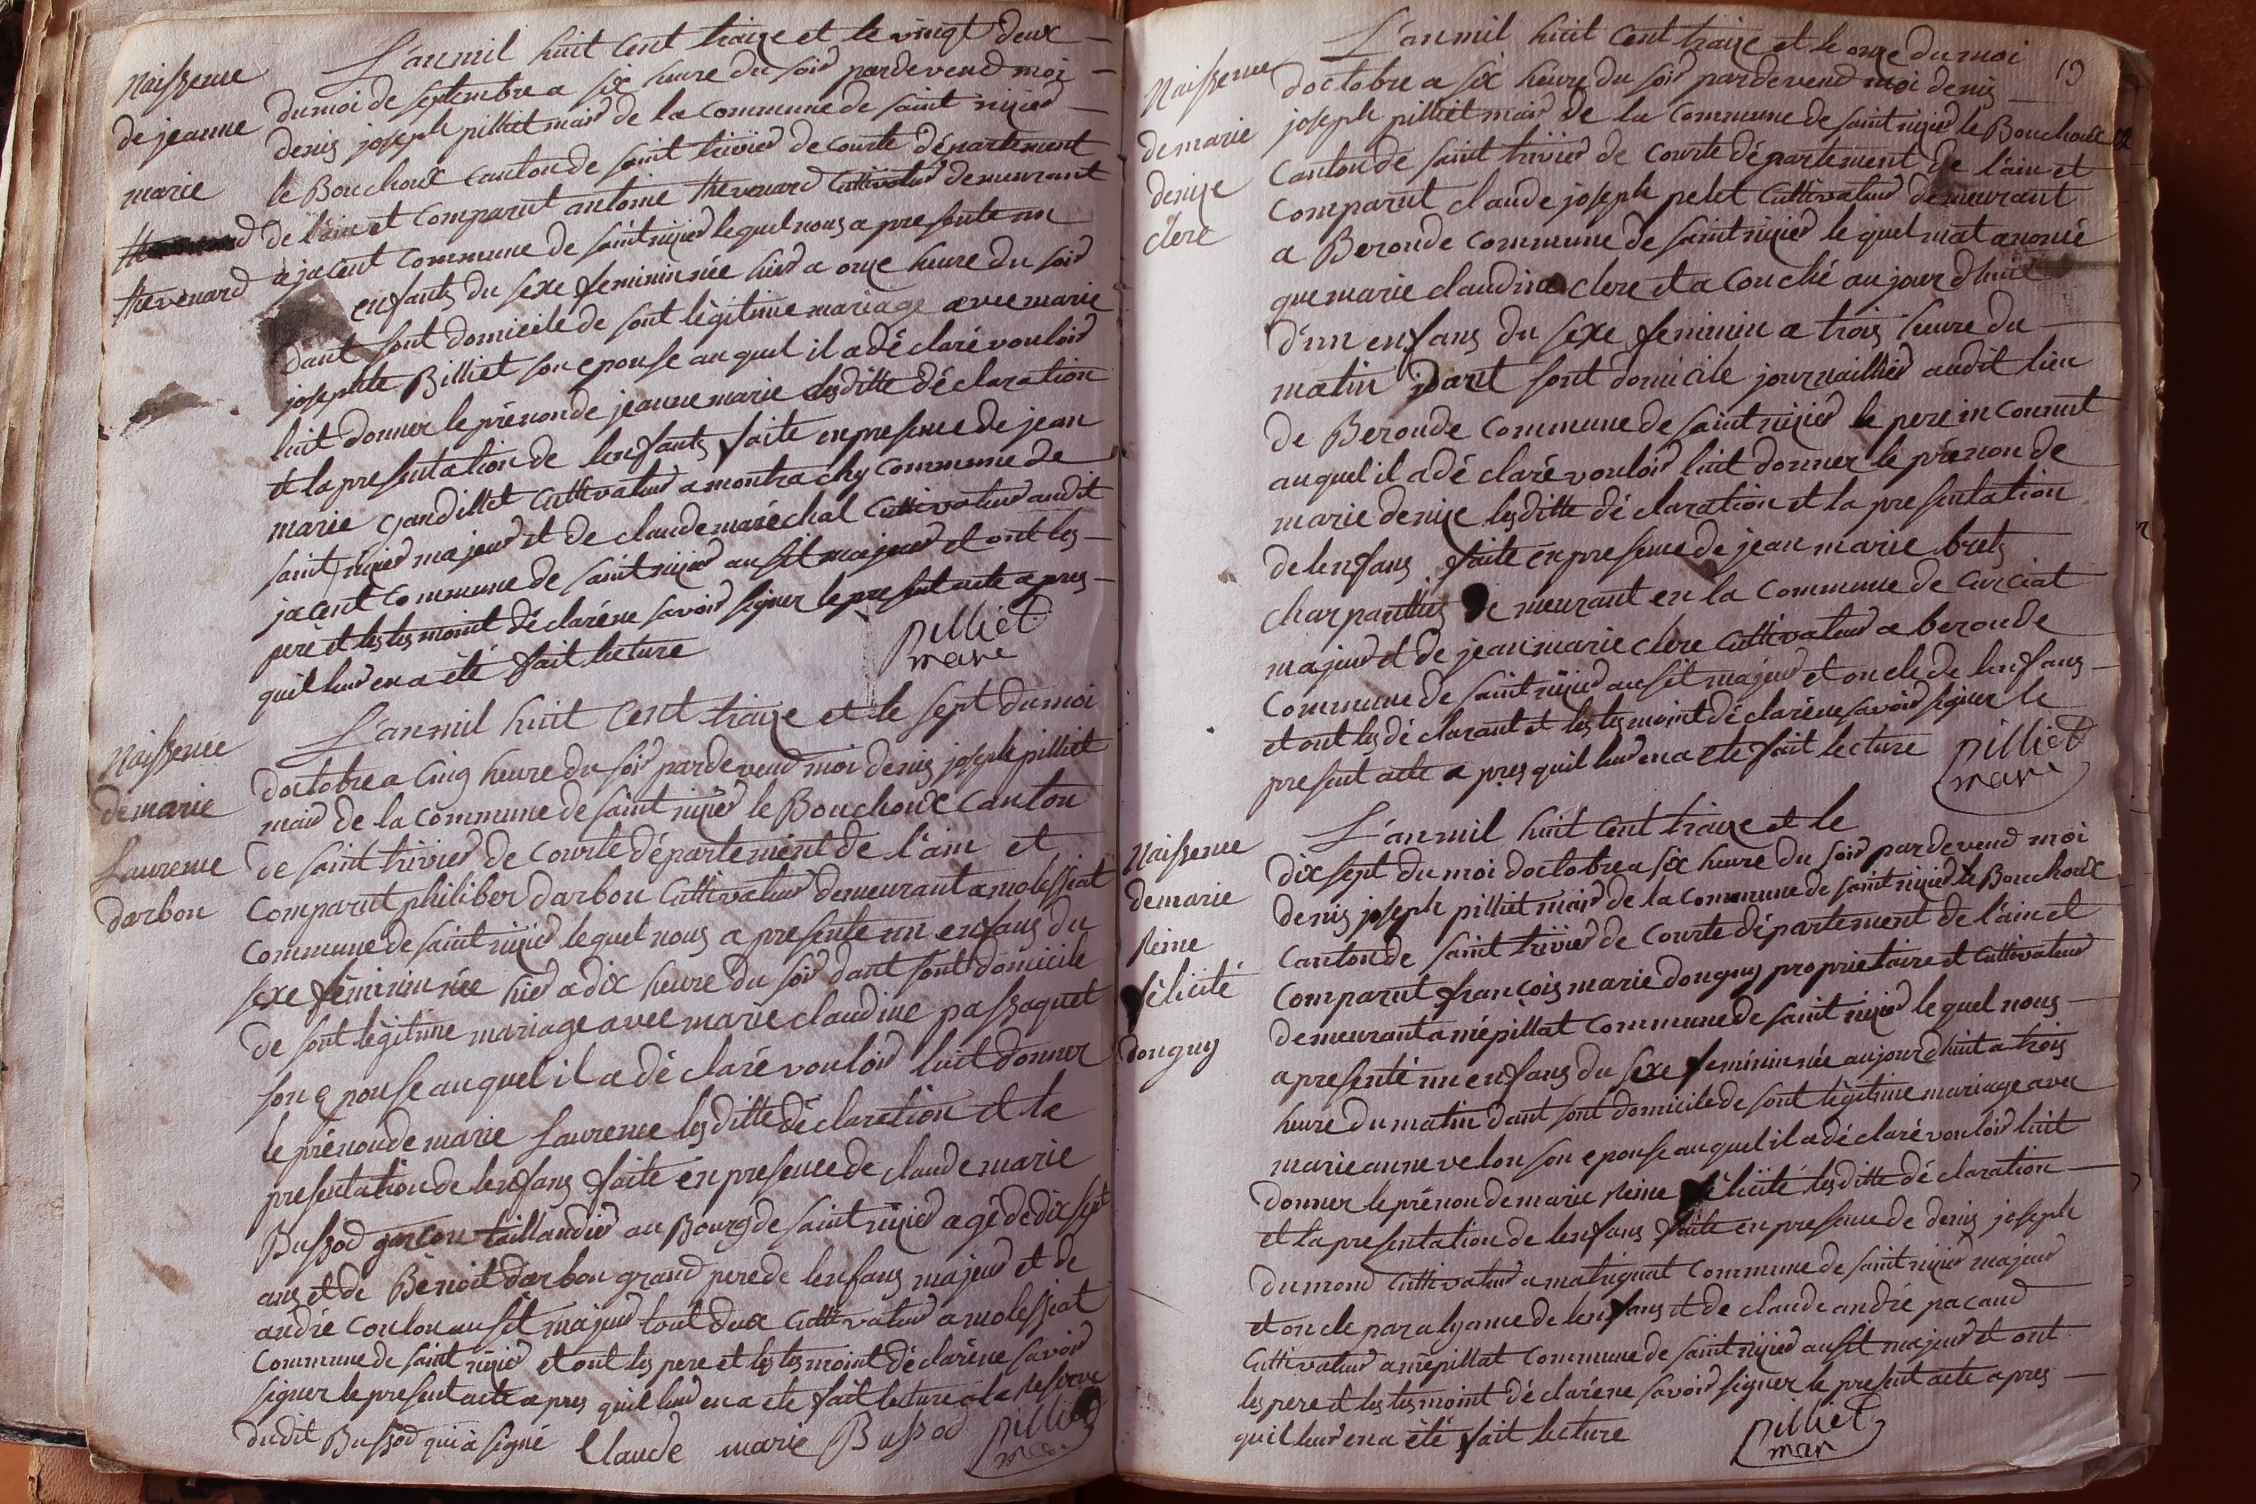 Naissence
de jeanne
marie
thevenard
L'an mil huit Cent traize et le vingt deux
du moi de septembre a six heure du soir pardevend moi
denis joseph pilliet mair de la Commune de saint nizier
le Bouchoux Canton de saint trivier de Courte département
de l'ain et Comparut antoine thevenard Cultivateur demeurant
a jacent Commune de saint nizier lequel nous a presente un
enfants du sexe feminin née hier a onze heure du soir
dant sont domicile de sont légitime mariage avec marie
josephte Billiet son epouse auquel il a dé claré vouloir
luit donner le prénon de jeanne marie lesditte déclaration
et la presentation de lenfants faite en presence de jean
marie gandillet Cultivateur a montrachy Commune de
saint nizier majeur et de claude maréchal Cultivateur audit
jacent Commune de saint nizier ausit majeur et ont les
pere et les tesmoint déclaréne savoir signer le present acte apres
quil leur en a été fait lecture
pilliet
mare
Naissence
de marie
Laurence
darbon
L'an mil huit Cent traize et le sept du moi
doctobre a Cinq heure du soir pardevend moi denis joseph pilliet
mair de la Commune de saint nizier le Bouchoux Canton
de saint trivier de Courte département de l'ain et
Comparut philiber darbon Cultivateur demeurant a molessiat
Commune de saint nizier lequel nous a presente un enfans du
sexe féminin née hier a dix heure du soir dant sont domicile
de sont légitime mariage avec marie claudine passaquet
son epouse auquel il a dé claré vouloir luit donner
le prénon de marie Laurence lesditte déclaration et la
presentation de lenfans faite en presence de claude marie
Bussod garcon taillandier au Bourg de saint nizier agé de dix sept
ans et de Benoit darbon grand pere de lenfans majeur et de
andré Coulon ausit majeur tout deux Cultivateur a molessiat
Commune de saint nizier et ont les pere et les tesmoint déclaréne savoir
signer le present acte apres quil leur en a ete fait lecture a la Reserve
dudit Bussod qui a signé Claude marie Bussod pilliet
mare
19
Naissence
de marie
denize
clere
L'an mil huit Cent traize et le onze du moi
doctobre a six heure du soir pardevend moi denis
joseph pilliet mair de la Commune de saint nizier le Bouchoux
Canton de saint trivier de Courte département de l'ain et
Comparut claude joseph pelet Cultivateur demeurant
a Beronde Commune de saint nizier le quel mat anoncé
que marie claudina clere et a Couché au jour dhuit
d'un enfans du sexe feminin a trois heure du
matin dant sont domicile journaillier audit lieu
de Beronde Commune de saint nizier le pere inconnut
auquel il a dé claré vouloir luit donner le prénon de
marie denize lesditte dé claration et la presentation
de lenfans faite en presence de jean marie brets
charpantier de meurant en la Commune de Curciat
majeur et de jean marie clere Cultivateur a beronde
Commune de saint nizier ausit majeur et oncle de lenfans
et ont les déclarant et les tesmoint déclaréne savoir signer le
present acte a pres quil leur en a ete fait lecture
pilliet
mare
Naissence
de marie
Reine
félicité
donguy
L'an mil huit Cent traize et le
dix sept du moi doctobre a six heure du soir pardevend moi
denis joseph pilliet mair de la Commune de saint nizier le Bouchoux
Canton de saint trivier de Courte département de l'ain et
Comparut francois marie donguy proprietaire et Cultivateur
demeurant a mépillat Commune de saint nizier le quel nous
a presenté un enfans du sexe feminin née aujourdhuit a trois
heure du matin dant sont domicile de sont légitime mariage avec
marie anne velon son epouse auquel il a dé claré vouloir luit
donner le prénon de marie Reine félicité lesditte déclaration
et la presentation de lenfans faite en presence de denis joseph
dumond Cultivateur a matrignat Commune de saint nizier majeur
et oncle par alyance de lenfans et de claude andré pacaud
Cultivateur a mépillat Commune de saint nizier ausit majeur et ont
les pere et les tesmoint déclaréne savoir signer le present acte apres
quil leur en a été fait lecture
pilliet
mare